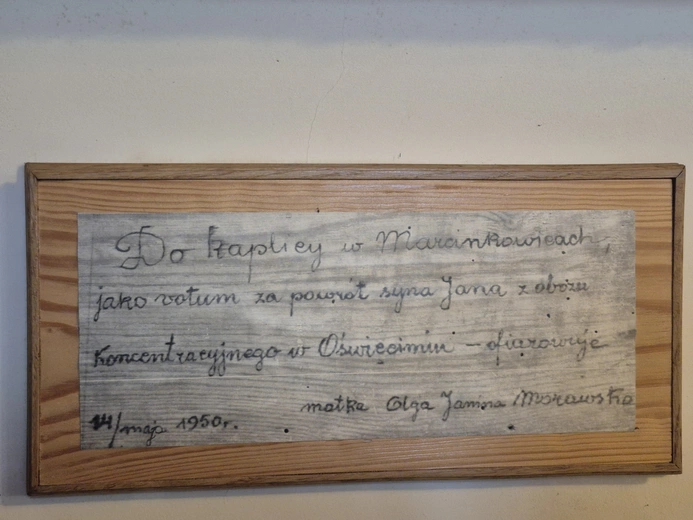 Do kaplicy w Marcinkowicach,
jako votum za powrót syna Jana z obozu
Koncentracyjnego w Oświęcimiu – ofiarowuje
matka Olga Janina Morawska
14/maja 1950 r.